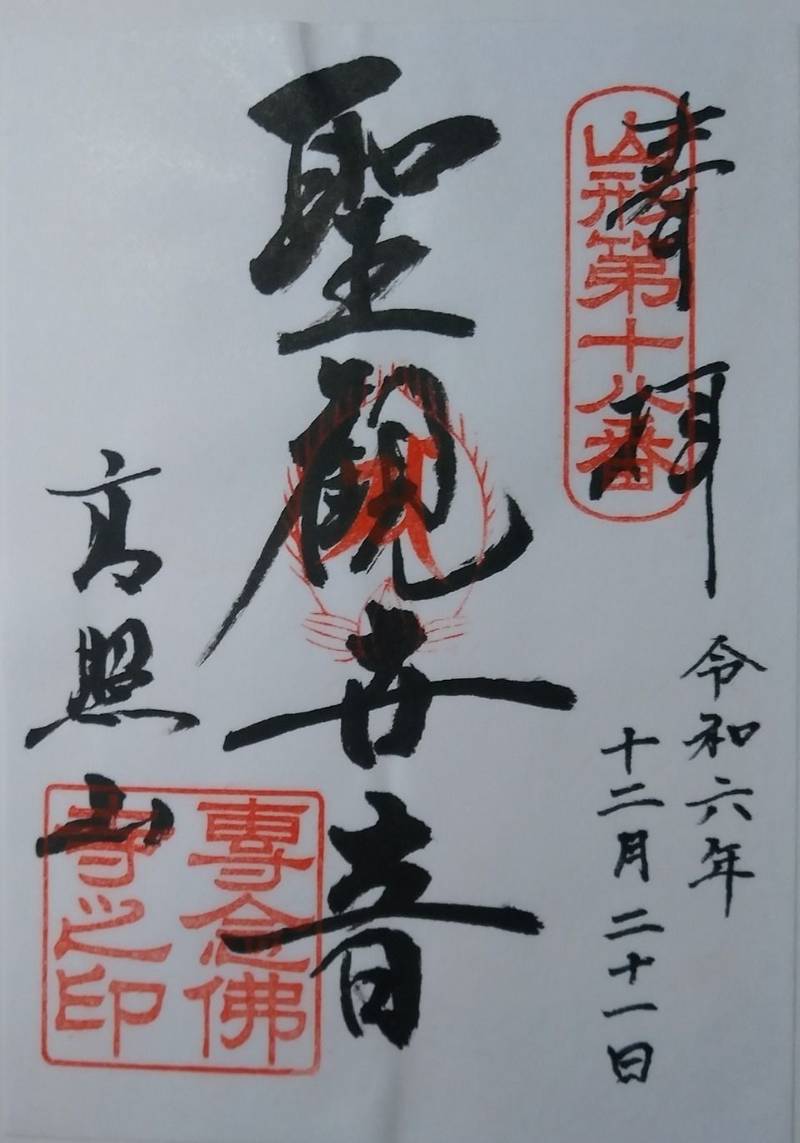 奉拝
山形第十八番
令和六年
十二月二十一日
聖観世音
高照山
専念佛
寺之印